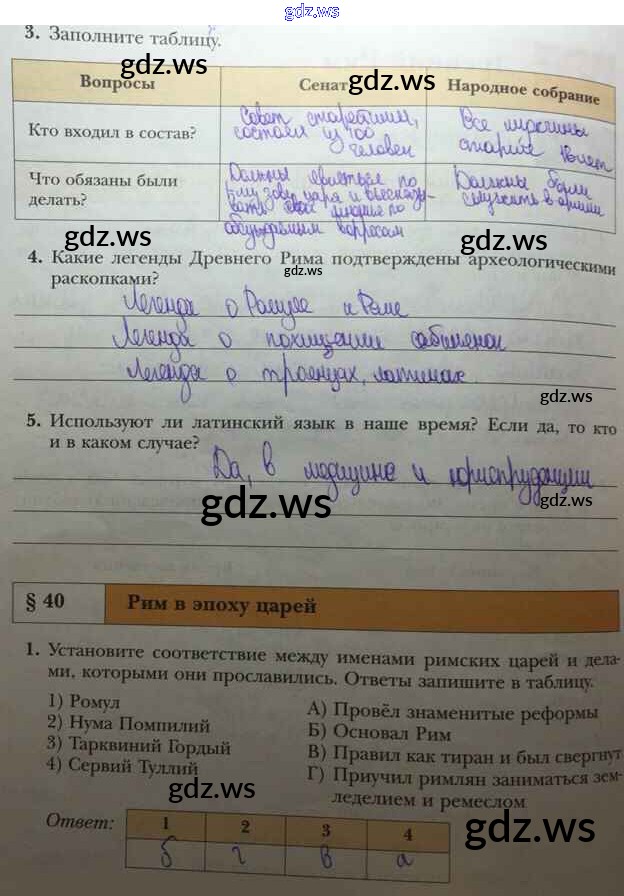 gdz.ws
3. Заполните таблицу.
gdz.ws
Вопросы
Сенат
gdz.ws
Народное собрание
Кто входил в состав?
Совет старейшин,
состоял из 100
человек
Все мужчины
старше
Что обязаны были
делать?
Должны являться по
зову царя и высказы-
вать свое мнение по
обсуждаемым вопросам
Должны были
служить в армии
gdz.ws
4. Какие легенды Древнего Рима подтверждены археологическими
раскопками?
gdz.ws
Легенда о Ромуле и Реме
Легенда о похищении сабинянок
Легенда о троянцах, латинах
gdz.ws
5. Используют ли латинский язык в наше время? Если да, то кто
и в каком случае?
Да, в медицине и юриспруденции
gdz.ws
gdz.ws
§ 40
Рим в эпоху царей
1. Установите соответствие между именами римских царей и дела-
ми, которыми они прославились. Ответы запишите в таблицу.
1) Ромул
2) Нума Помпилий
3) Тарквиний Гордый
4) Сервий Туллий
А) Провёл знаменитые реформы
Б) Основал Рим
В) Правил как тиран и был свергнут
Г) Приучил римлян заниматься зем-
леделием и ремеслом
gdz.ws
Ответ:
1 2 3 4
б г в а
gdz.ws
gdz.ws